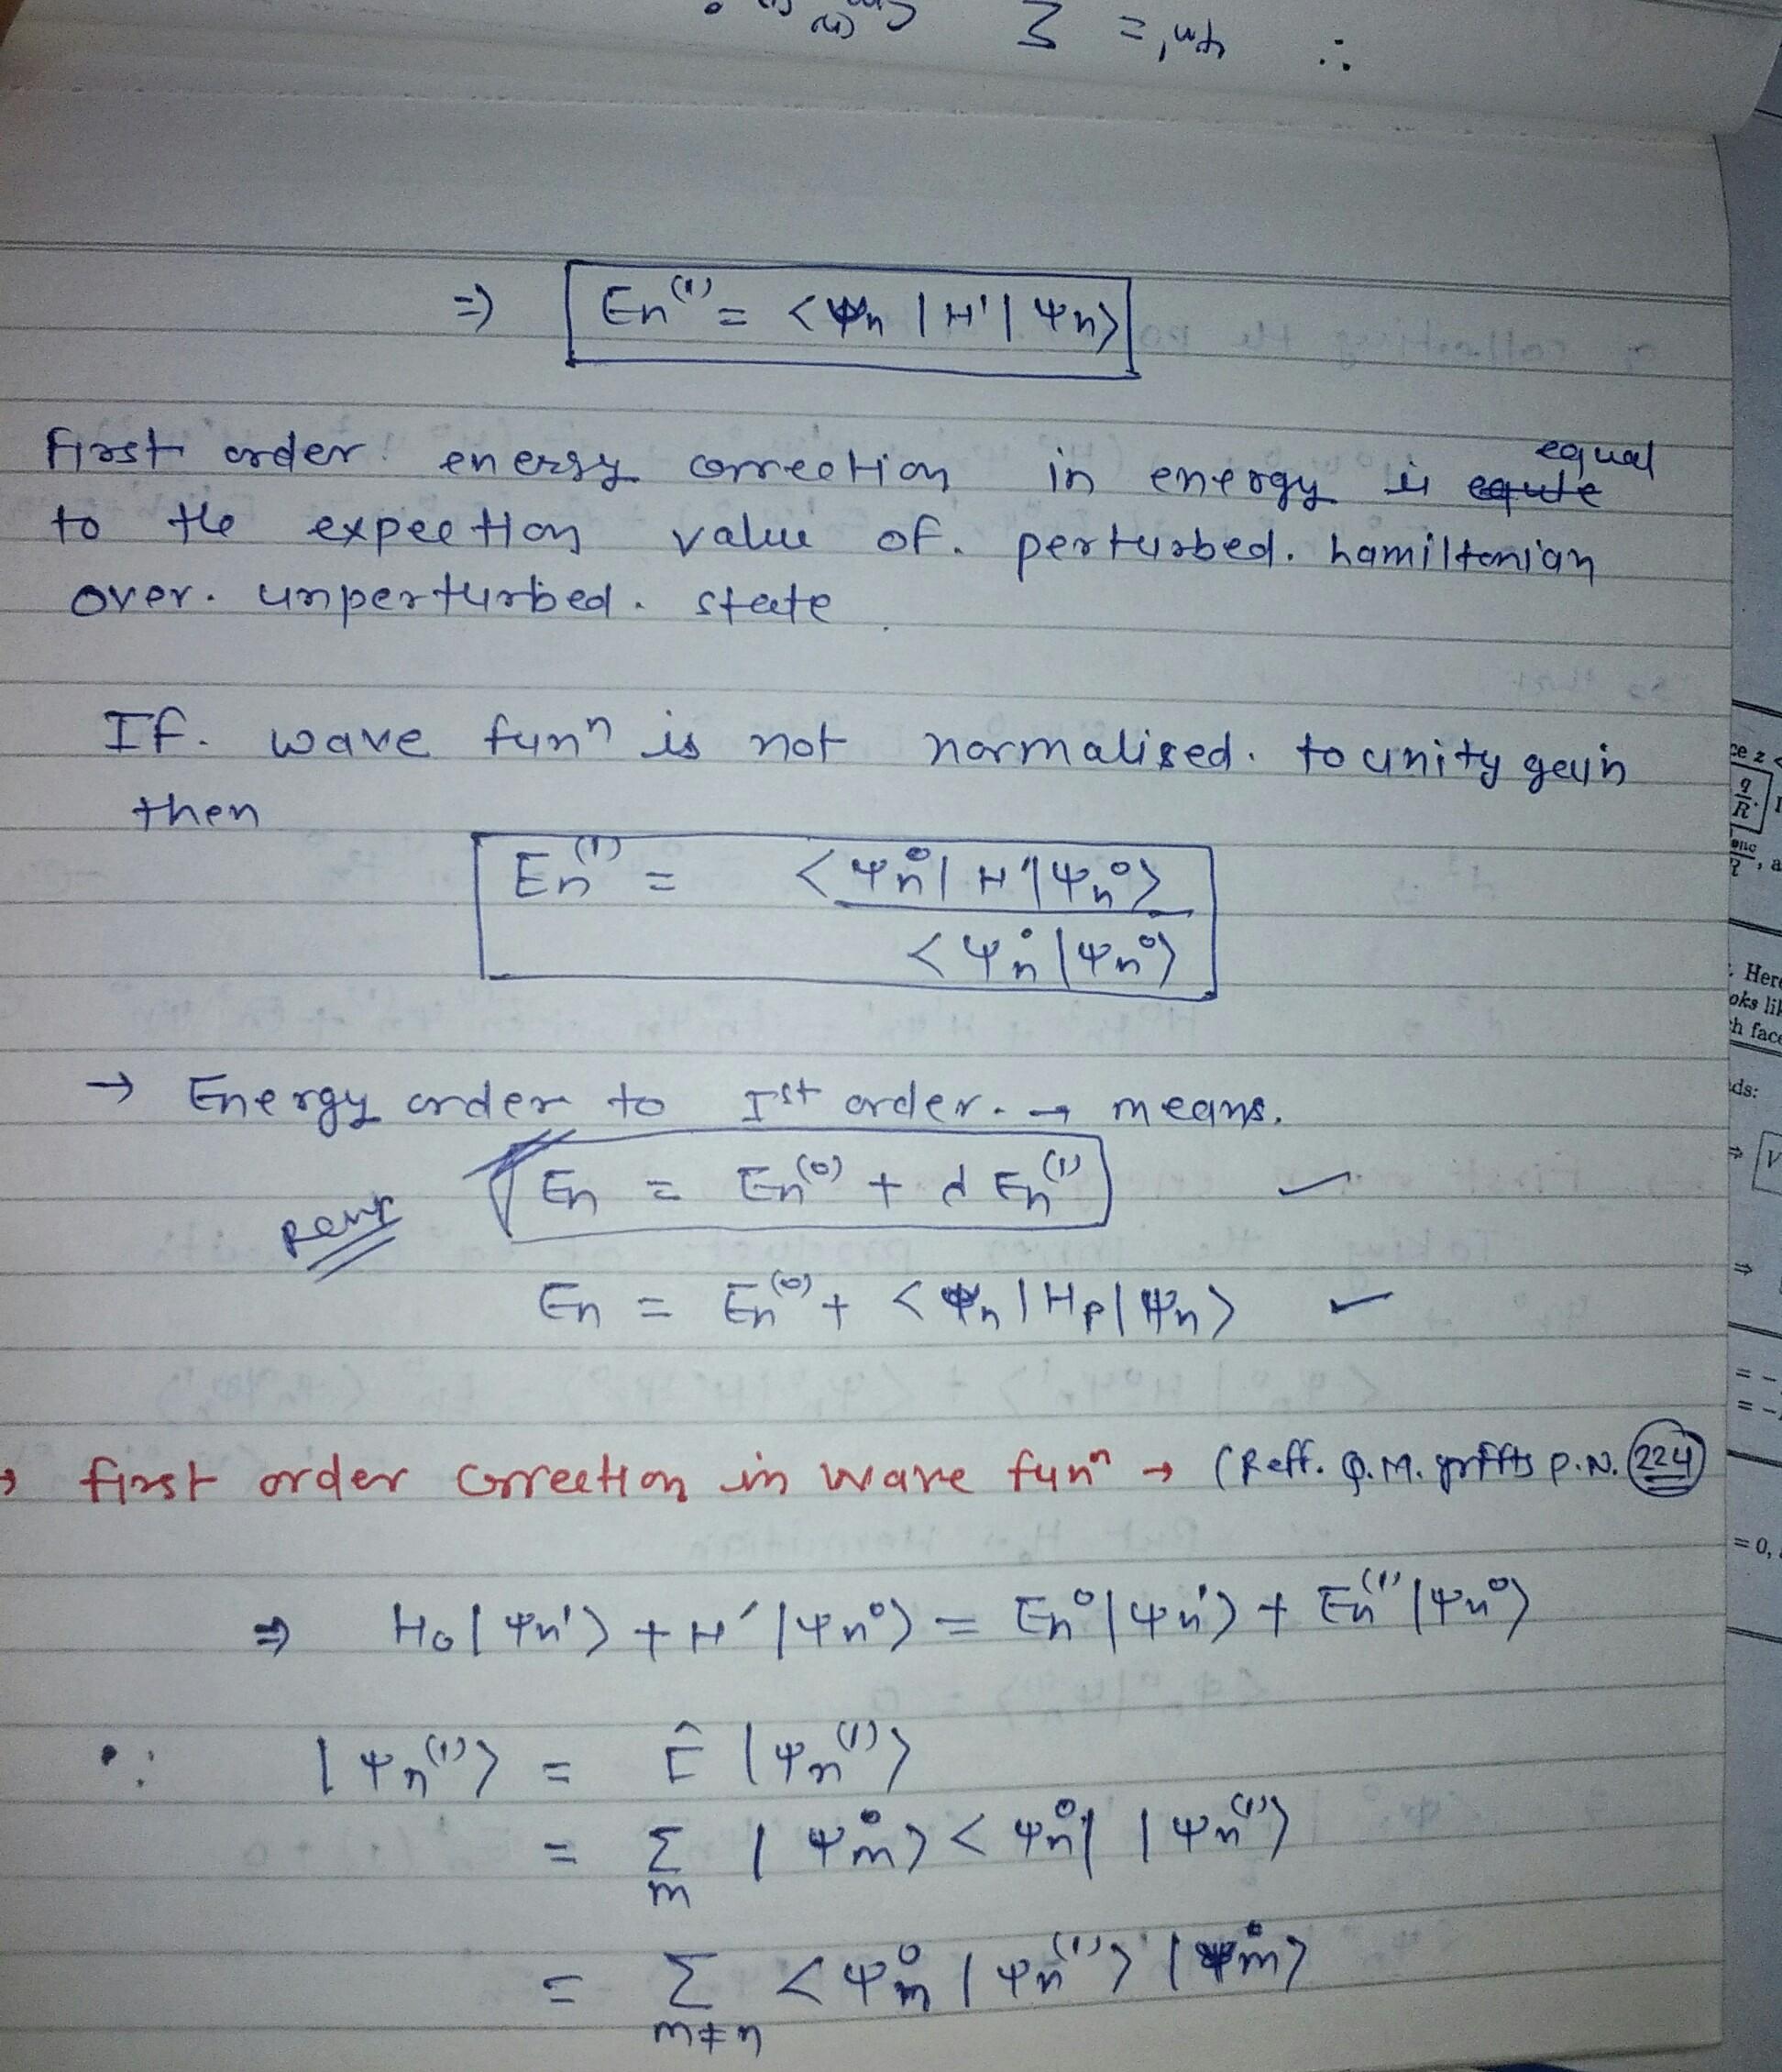 ∴ ψm', = Σ
⇒ En⁽¹⁾ = <ψn | H' | ψn>
First order energy correction in energy is equte equal
to the expection value of. perturbed. hamiltonian
over. unperturbed. state
If. wave funⁿ is not normalised. to unity
then
En⁽¹⁾ = <ψn⁰ | H' | ψn⁰>
<ψn⁰ | ψn⁰>
→ Energy order to Ist order. → means.
En = En⁽⁰⁾ + d En⁽¹⁾
En = En⁽⁰⁾ + <ψn | Hp | ψn>
→ first order correction in wave funⁿ → (Reff. Q.M. P.N. 224)
⇒ H₀ | ψn'> + H' | ψn⁰> = En⁰ | ψn'> + En⁽¹⁾ | ψn⁰>
∵ | ψn⁽¹⁾> = Î | ψn⁽¹⁾>
= Σ | ψm⁰> < ψn⁰ | | ψn⁽¹⁾>
m
= Σ < ψm⁰ | ψn⁽¹⁾> | ψm⁰>
m≠n
ce z <
q
R
one
, a
. Here
oks lik
ch face
ds:
⇒ V
⇒
= -
= -
= 0,